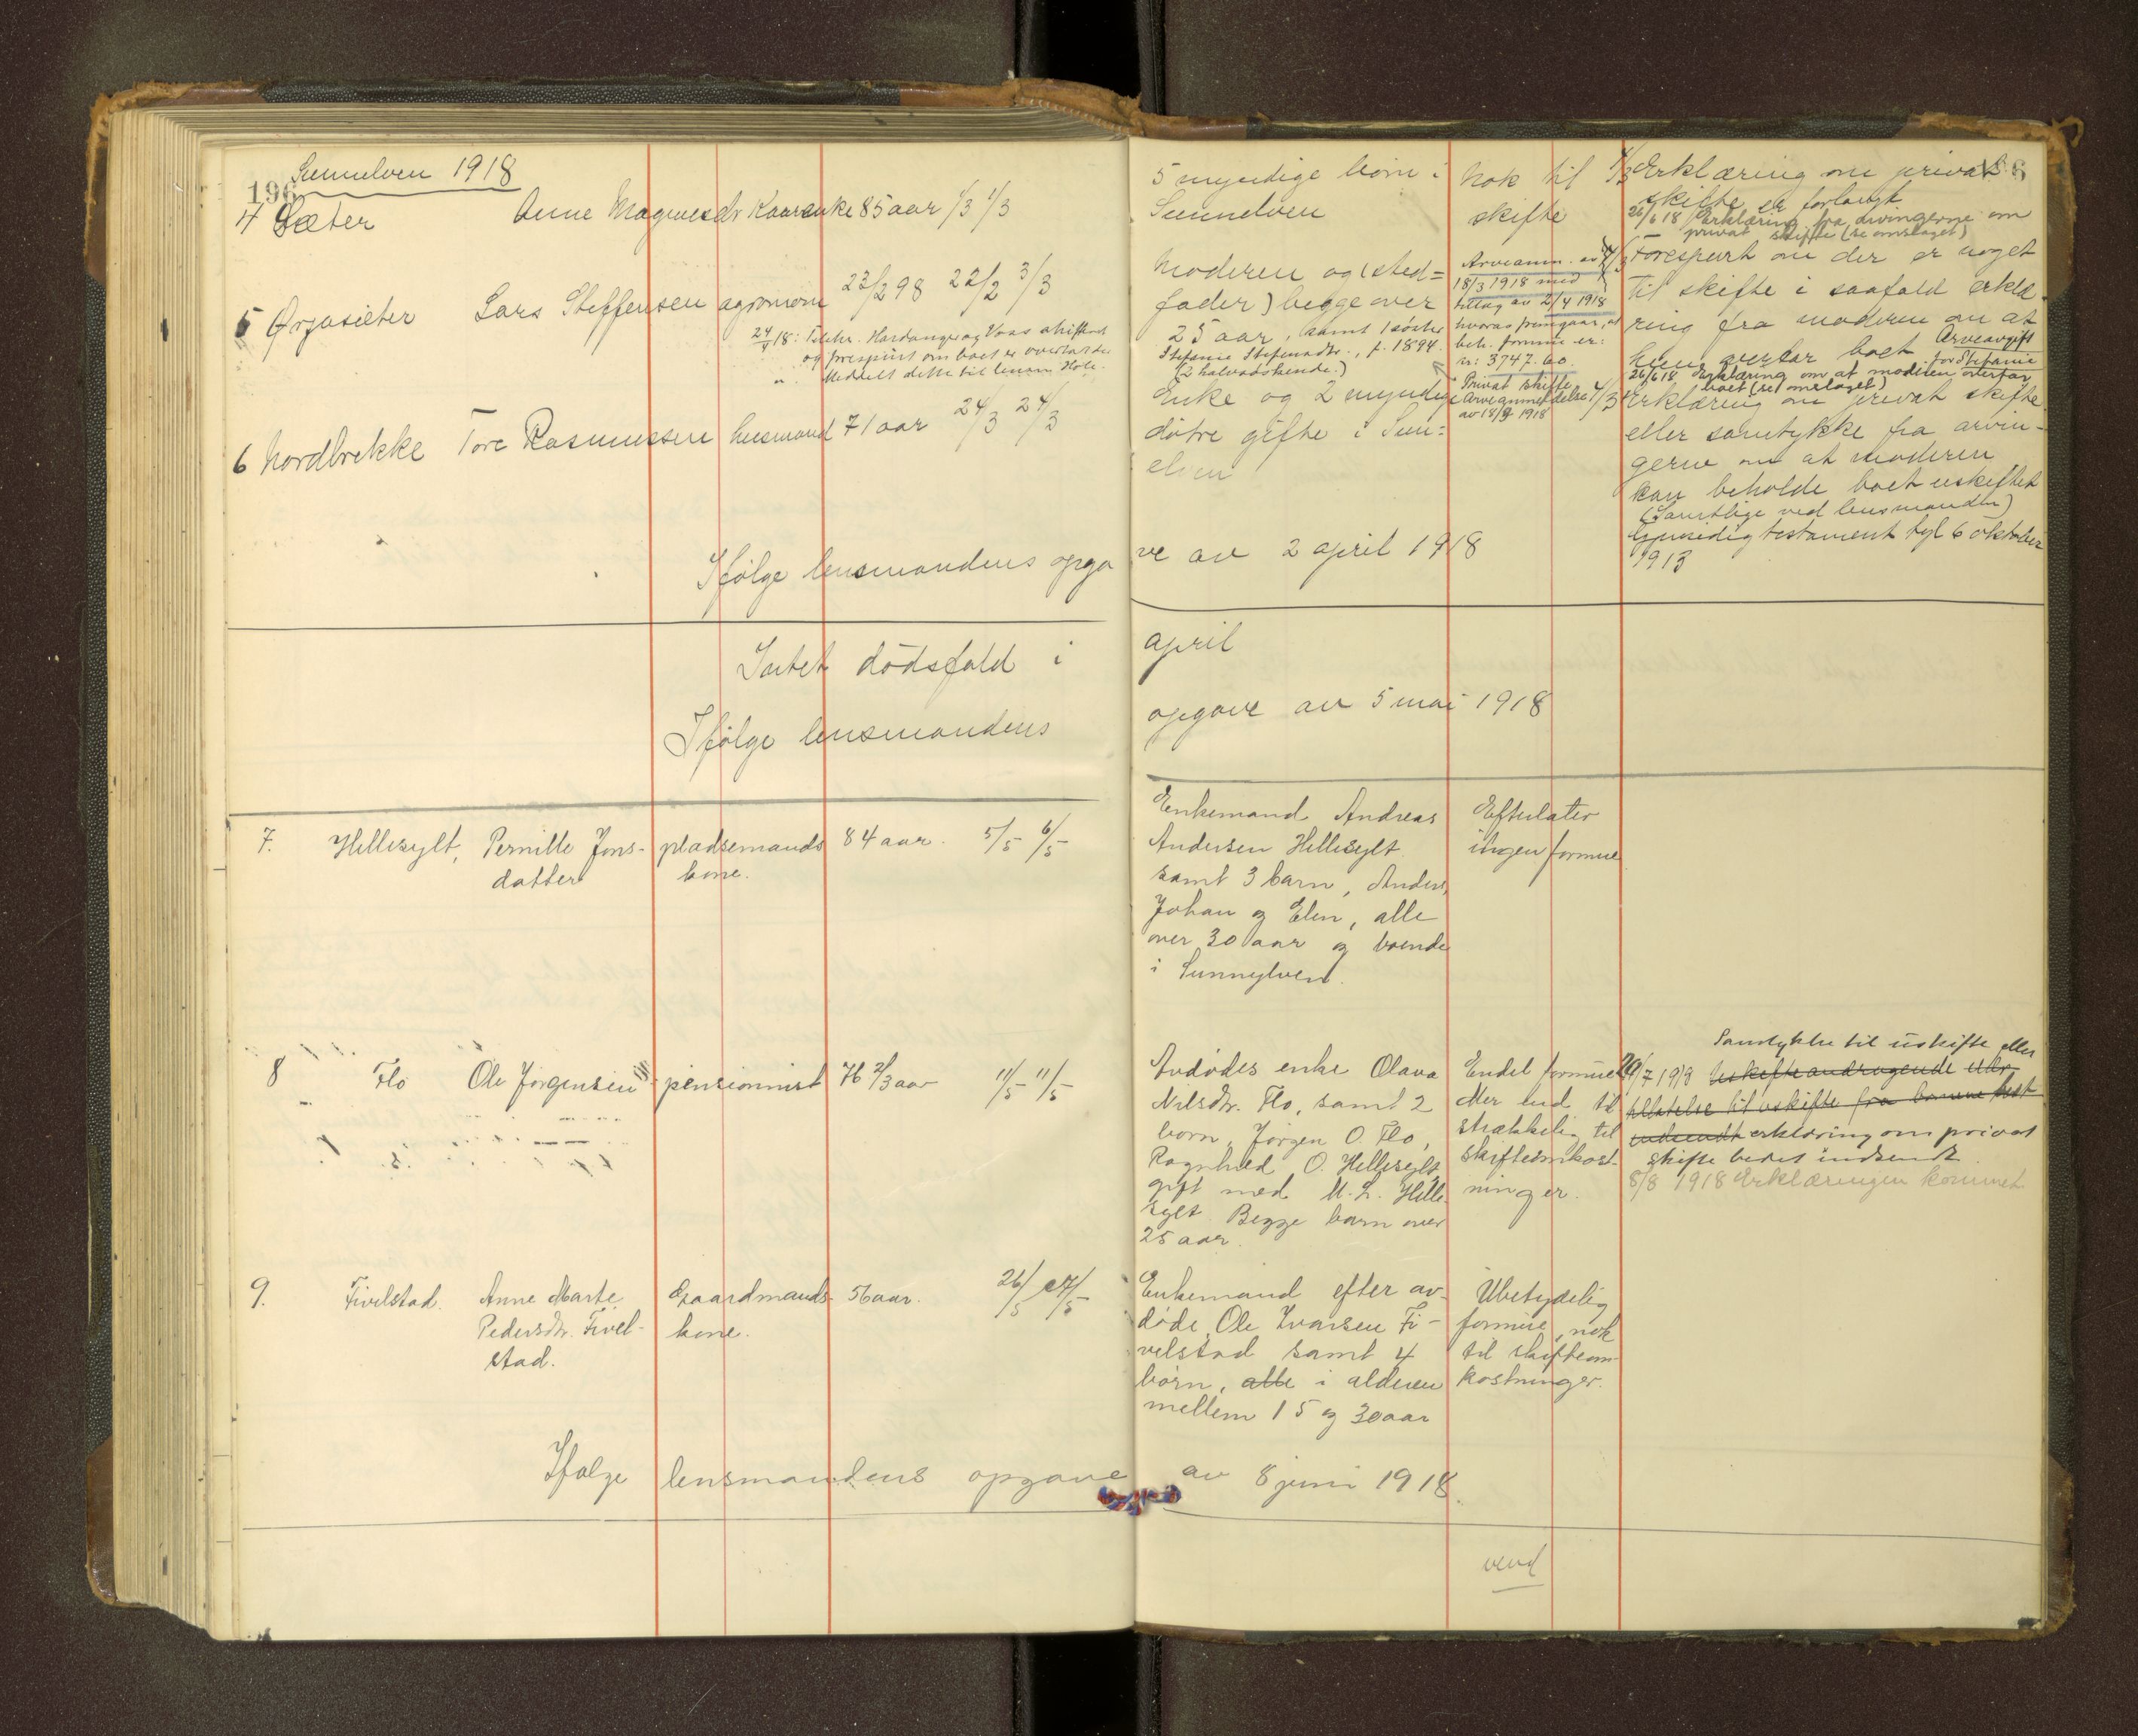 196
Sunnelven 1918
4 Sæter Anne Magnesdr Kaarenke 85 aar 1/3 1/3
5 Ørjasæter Lars Steffensen agronom 23/2 98 22/2 3/3
24/4 18: Telehr. Hardanger og Voss skifteret
og forespurt om boet er overtat der
" Meddelt dette til lensm Hole.
6 Nordbrekke Tore Rasmussen husmand 71 aar 24/3 24/3
Ifølge lensmandens opga
Intet dödsfald i
Ifölge lensmandens
7. Hellesylt, Pernille Jons- pladsemands 84 aar. 5/5 6/5
datter kone.
8 Flo Ole Jørgensen pensionist 76 2/3 aar 11/5 11/5
9. Fivelstad. Anne Marte Gaardmands- 56 aar. 26/5 27/5
Pedersdtr. Fivel- kone.
stad.
Ifølge lensmandens opgave
196
5 myndige børn i
Sunnelven
Nok til
skifte
4/3 Erklæring om privat
skifte er forlangt
26/6 18 Erklæring fra arvingerne om
privat skifte (se omslaget)
Moderen og (sted=
fader) begge over
25 aar, samt 1 søster
Stefanie Stefensdtr., f. 1894
(2 halvsøskende.)
Arveanm. av
18/3 1918 med
tillæg av 2/4 1918
hvoras fremgaar, at
beh. formue er:
kr: 3747.60.
Privat skifte
4/3 Forespurt om der er noget
til skifte i saafald erklæ-
ring fra moderen om at
hun overtar boet. Arveavgift
for Stefanie
26/6 18 Erklæring om at moderen overtar
boet (se omslaget)
Enke og 2 myndige
døtre gifte i Sun=
elven
Arveanmeldelse
av 18/9 1918
4/3 Erklæring om privat skifte
eller samtykke fra arvin-
gerne om at moderen
kan beholde boet uskiftet
(Samtlige ved lensmanden)
Gjensidig testament tgl 6 oktober
1913
ve av 2 april 1918
april
opgave av 5 mai 1918
Enkemand Andreas
Andersen Hellesylt
samt 3 barn, Anders,
Johan og Elen, alle
over 30 aar og boende
i Sunnylven.
Efterlater
ingen formue
Avdødes enke Olava
Nilsdtr. Flo, samt 2
born, Jörgen O. Flo,
Ragnhild O. Hellesylt,
gift med M. L. Helle-
sylt. Begge barn over
25 aar.
Endel formue
Mer end til
strækkelig til
skifteomkost-
ninger.
Samtykke til uskifte eller
29/7 1918 Uskifteandragende eller
tillatelse til uskifte fra barnene best
indsendt erklæring om privat
skifte bedes indsendt
8/8 1918 Erklæringen kommet
Enkemand efter av-
døde, Ole Ivarsen Fi-
velstad samt 4
børn, alle i alderen
mellem 15 og 30 aar
Ubetydelig
formue, nok
til skifteom-
kostninger.
av 8 juni 1918.
vend